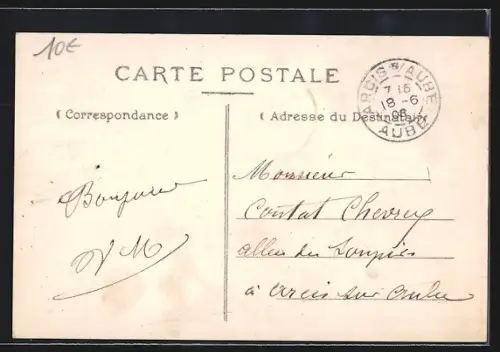 10€
CARTE POSTALE
( Correspondance )
( Adresse du Destinataire )
ARCIS S/AUBE
7 15
18 -6
08
AUBE
Bonjour
Monsieur
Contat Chevry
allée des
à arcis sur aube